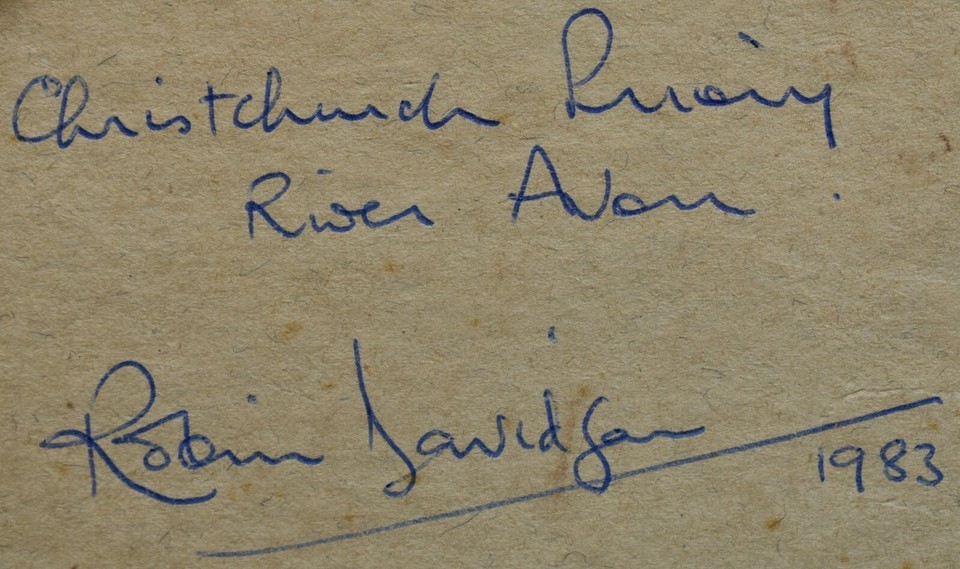 Christchurch Priory
River Avon .
Robin Davidson
1983